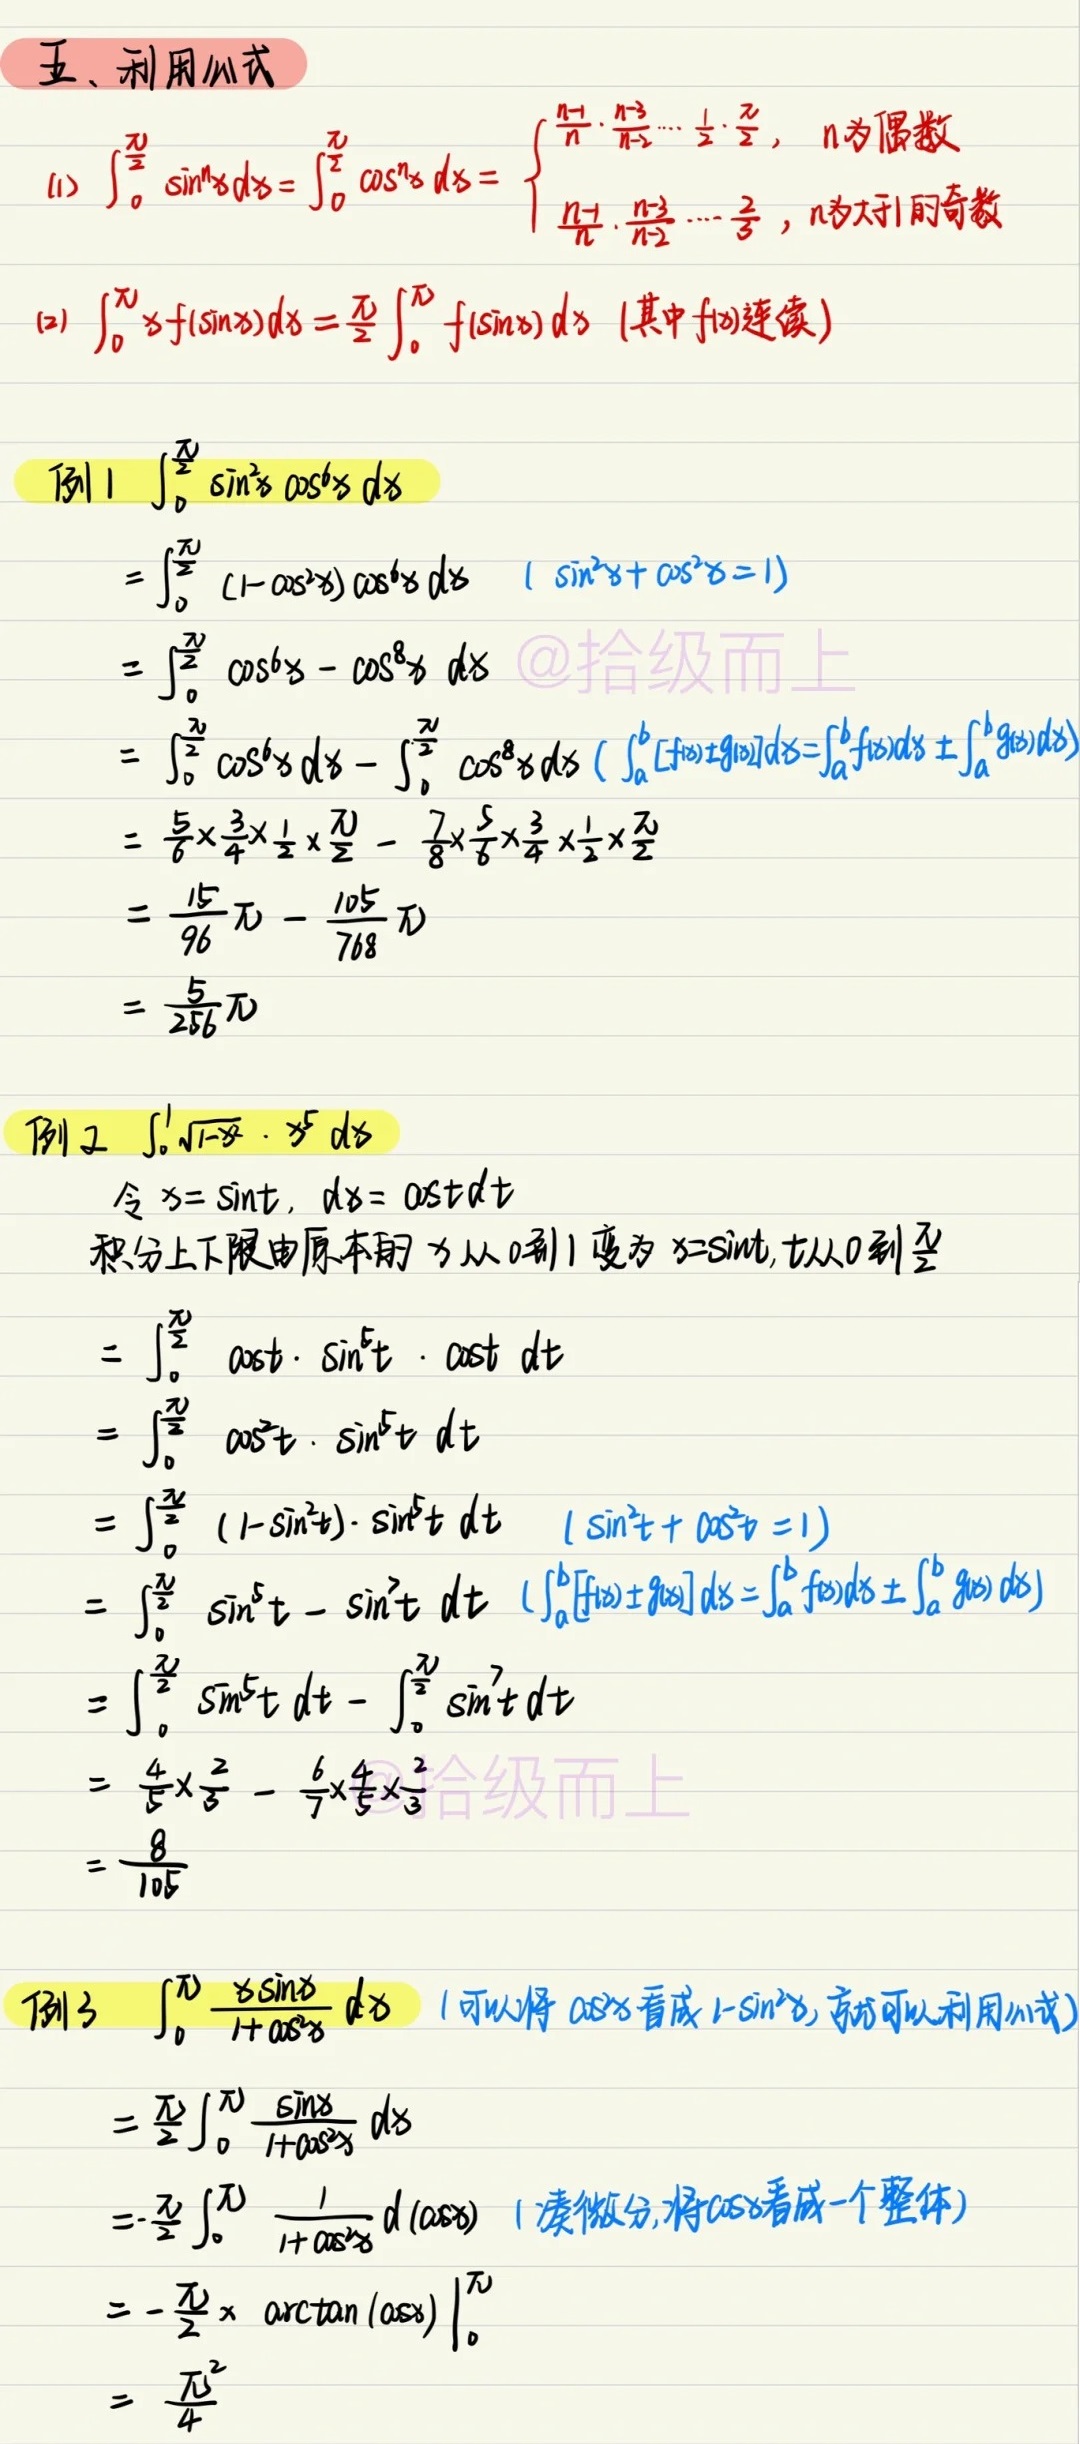 五、利用公式
(1) ∫₀^(π/2) sinⁿx dx = ∫₀^(π/2) cosⁿx dx = { (n-1)/n · (n-3)/(n-2) ··· 1/2 · π/2 , n为偶数
(n-1)/n · (n-3)/(n-2) ···· 2/3 , n为大于1的奇数
(2) ∫₀^π x f(sinx) dx = π/2 ∫₀^π f(sinx) dx (其中f(x)连续)
例1 ∫₀^(π/2) sin²x cos⁶x dx
= ∫₀^(π/2) (1-cos²x) cos⁶x dx ( sin²x + cos²x = 1)
= ∫₀^(π/2) cos⁶x - cos⁸x dx @拾级而上
= ∫₀^(π/2) cos⁶x dx - ∫₀^(π/2) cos⁸x dx ( ∫ₐᵇ [f(x)±g(x)]dx = ∫ₐᵇ f(x)dx ± ∫ₐᵇ g(x)dx)
= 5/6 × 3/4 × 1/2 × π/2 - 7/8 × 5/6 × 3/4 × 1/2 × π/2
= 15/96 π - 105/768 π
= 5/256 π
例2 ∫₀¹ √(1-x²) · x⁵ dx
令 x = sint, dx = cost dt
积分上下限由原本的 x从0到1变为 x=sint, t从0到 π/2
= ∫₀^(π/2) cost · sin⁵t · cost dt
= ∫₀^(π/2) cos²t · sin⁵t dt
= ∫₀^(π/2) (1-sin²t) · sin⁵t dt ( sin²t + cos²t = 1)
= ∫₀^(π/2) sin⁵t - sin⁷t dt ( ∫ₐᵇ [f(x)±g(x)] dx = ∫ₐᵇ f(x)dx ± ∫ₐᵇ g(x) dx)
= ∫₀^(π/2) sin⁵t dt - ∫₀^(π/2) sin⁷t dt
= 4/5 × 2/3 - 6/7 × 4/5 × 2/3
@拾级而上
= 8/105
例3 ∫₀^π (x sinx)/(1+cos²x) dx (可以将 cos²x 看成 1-sin²x, 就可以利用公式)
= π/2 ∫₀^π sinx/(1+cos²x) dx
= -π/2 ∫₀^π 1/(1+cos²x) d(cosx) (凑微分,将cosx看成一个整体)
= -π/2 × arctan(cosx) |₀^π
= π²/4